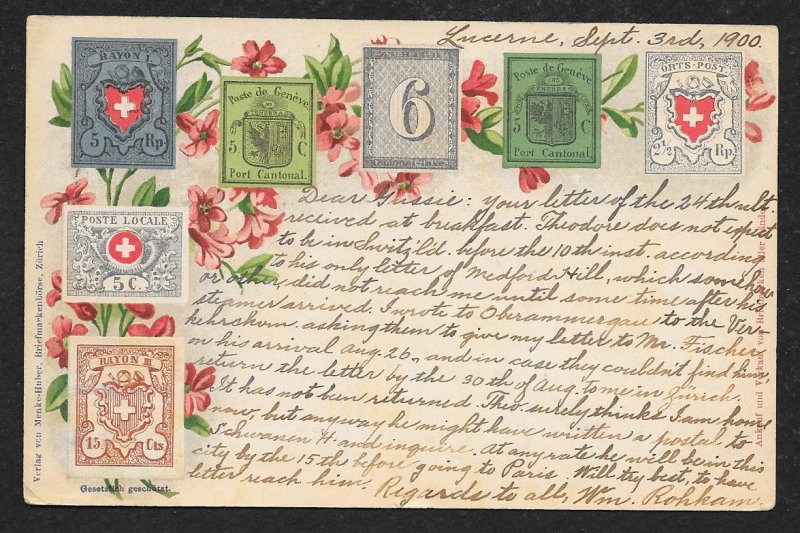 Lucerne, Sept. 3rd, 1900.
RAYON I.
5 Rp.
Poste de Genève
5 C
Port Cantonal.
6
Poste de Genève
5 C
Port Cantonal.
ORTS-POST
2½ Rp.
POSTE LOCALE
5 C.
RAYON III
15 Cts.
Dear Gussie: your letter of the 24th ult.
received at breakfast. Theodore does not expect
to be in Switz'ld. before the 10th inst. according
to his only letter of Medford Hill, which somehow
or other, did not reach me until some time after his
steamer arrived. I wrote to Oberammergau to the Ver-
kehrsbureau asking them to give my letter to Mr. Fischer
on his arrival Aug. 26, and in case they couldn't find him
return the letter by the 30th of Aug. to me in Zürich.
It has not been returned. Theo. surely thinks I am home
now, but anyway he might have written a postal to
Schwanen H. and inquire. At any rate he will be in this
city by the 15th before going to Paris. Will try best, to have
letter reach him. Regards to all, Wm.
Verlag von Menke-Huber, Briefmarkenbörse, Zürich
Gesetzlich geschützt.
Ankauf und Verkauf von Briefmarken aller Länder